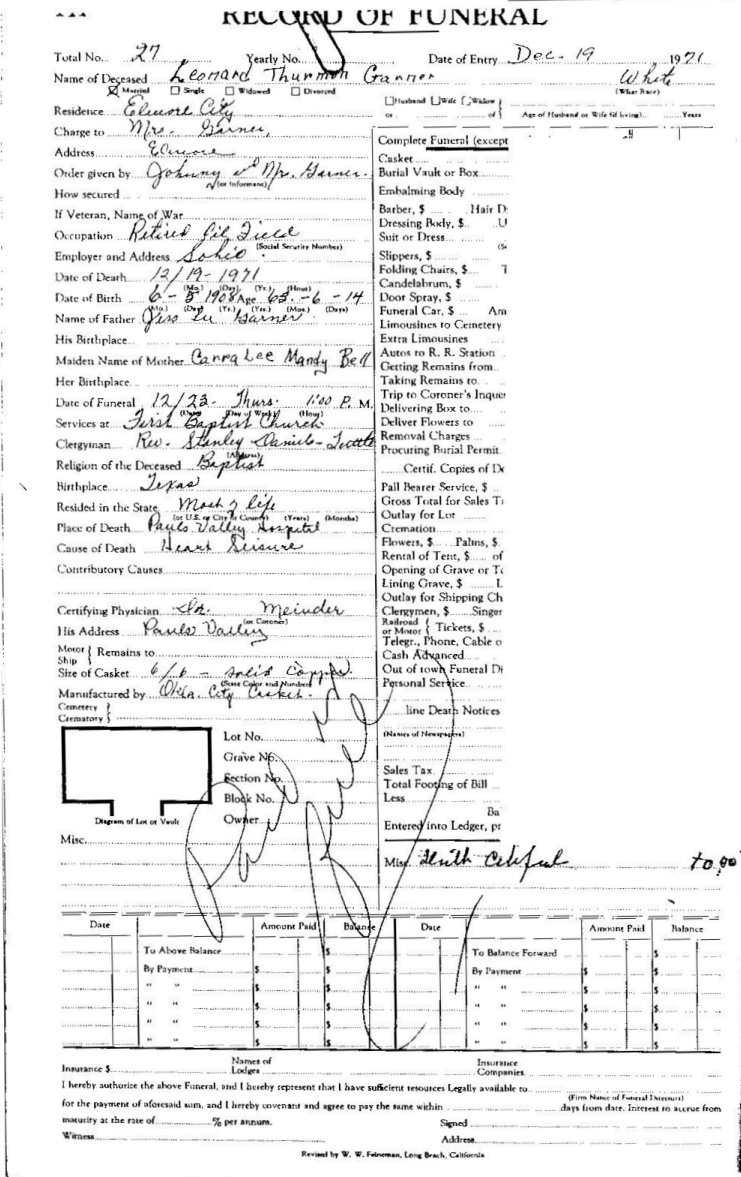 RECORD OF FUNERAL
Total No. 27 Yearly No. Date of Entry Dec. 19 1971
Name of Deceased Leonard Thurmon Garner White
☒ Married ☐ Single ☐ Widowed ☐ Divorced (What Race)
☐ Husband ☐ Wife ☐ Widow
Residence Elmore City or of Age of Husband or Wife (if living) Years
Charge to Mrs. Garner,
Address Elmore
Order given by Johnny or Mrs. Garner.
(or Informant)
How secured
If Veteran, Name of War
Occupation Retired Oil Field
(Social Security Number)
Employer and Address Sohio.
Date of Death 12/19-1971
(Mo.) (Day) (Yr.) (Hour)
Date of Birth 6-5 1908 Age 63-6-14
(Mo.) (Day) (Yr.) (Yrs.) (Mos.) (Days)
Name of Father Garner
His Birthplace
Maiden Name of Mother Canra Lee Mandy Bell
Her Birthplace
Date of Funeral 12/23- Thurs. 1:00 P. M.
(Date) (Day of Week) (Hour)
Services at First Baptist Church
Clergyman Rev. Stanley Daniels-
(Address)
Religion of the Deceased Baptist
Birthplace Texas
Resided in the State Most of life
(or U.S. or City or County) (Years) (Months)
Place of Death Pauls Valley Hospital
Cause of Death Heart Seisure
Contributory Causes
Certifying Physician Dr. Meinder
(or Coroner)
His Address Pauls Valley
Motor Ship } Remains to
Size of Casket 6/6 - solid copper.
(State Color and Number)
Manufactured by Okla. City Casket.
Cemetery
Crematory }
Lot No.
Grave No.
Section No.
Block No.
Owner
Diagram of Lot or Vault
Misc.
Paid in Full
Complete Funeral (except
Casket
Burial Vault or Box
Embalming Body
Barber, $ Hair D
Dressing Body, $ U
Suit or Dress
(S
Slippers, $
Folding Chairs, $ T
Candelabrum, $
Door Spray, $
Funeral Car, $ Am
Limousines to Cemetery
Extra Limousines
Autos to R. R. Station
Getting Remains from
Taking Remains to
Trip to Coroner's Inque
Delivering Box to
Deliver Flowers to
Removal Charges
Procuring Burial Permit
Certif. Copies of De
Pall Bearer Service, $
Gross Total for Sales T
Outlay for Lot
Cremation
Flowers, $ Palms, $
Rental of Tent, $ of
Opening of Grave or To
Lining Grave, $ L
Outlay for Shipping Ch
Clergymen, $ Singer
Railroad or Motor } Tickets, $
Telegr., Phone, Cable o
Cash Advanced
Out of town Funeral Di
Personal Service
line Death Notices
(Names of Newspapers)
Sales Tax
Total Footing of Bill
Less
Ba
Entered into Ledger, p
Misc.
Date Amount Paid Balance Date Amount Paid Balance
To Above Balance $ To Balance Forward $
By Payment $ $ By Payment $ $
" " $ $ " " $ $
" " $ $ " " $ $
" " $ $ " " $ $
" " $ $ " " $ $
Insurance $ Names of Lodges Insurance Companies
I hereby authorize the above Funeral, and I hereby represent that I have sufficient resources Legally available to
(Firm Name of Funeral Directors)
for the payment of aforesaid sum, and I hereby covenant and agree to pay the same within days from date. Interest to accrue from
maturity at the rate of % per annum. Signed
Witness Address
Revised by W. W. Feineman, Long Beach, California